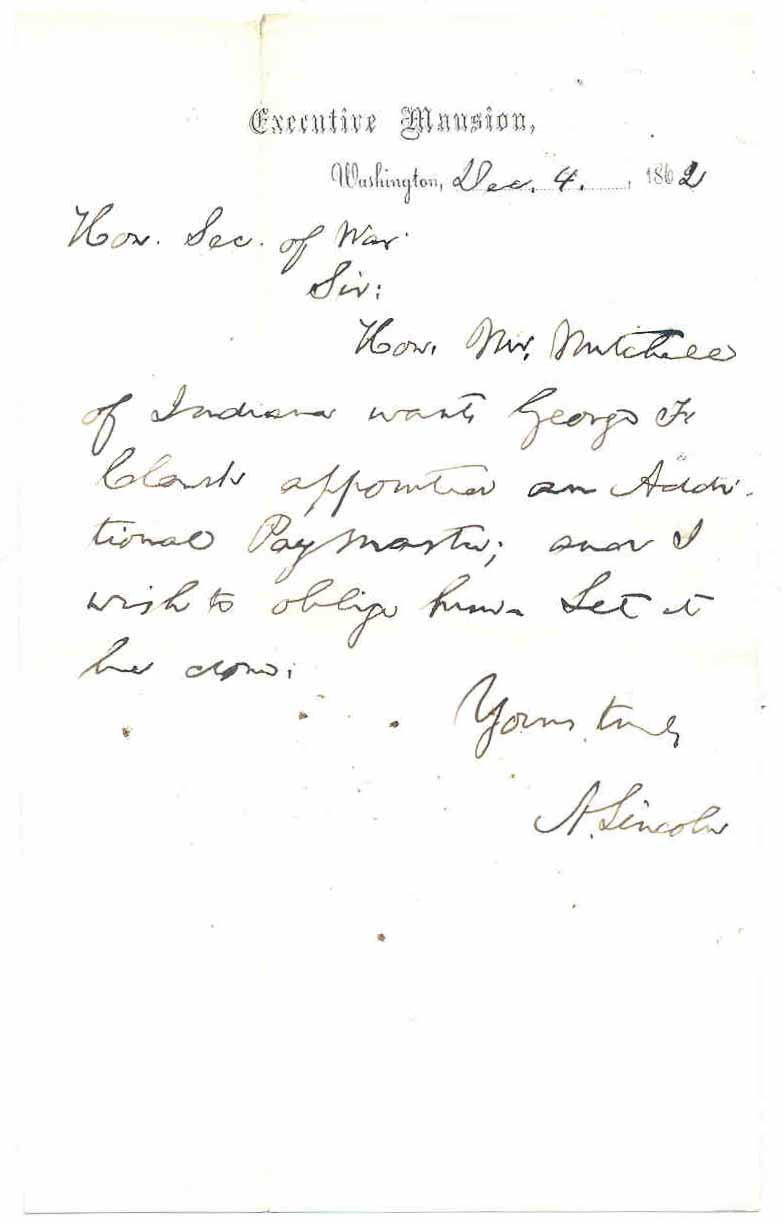 Executive Mansion,
Washington, Dec. 4., 1862
Hon. Sec. of War
Sir:
Hon. Mr. Mitchell
of Indiana wants George F.
Clark appointed an Addi-
tional Paymaster; and I
wish to oblige him. Let it
be done.
Yours truly
A. Lincoln